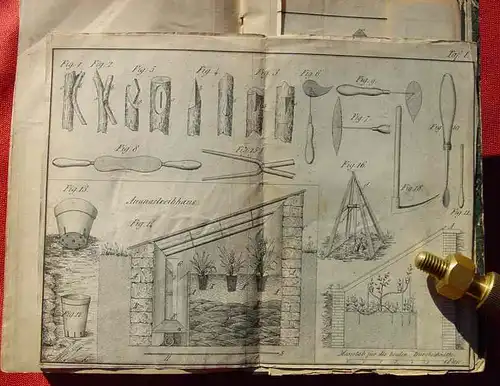 Taf. I.
Fig. 1. Fig. 2. Fig. 3. Fig. 4. Fig. 5. Fig. 6. Fig. 9.
Fig. 7. Fig. 10.
Fig. 8. Fig. 15. Fig. 16.
Fig. 13. Ananastreibhaus. Fig. 18. Fig. 11.
Fig. 12.
Maasstab für die beiden